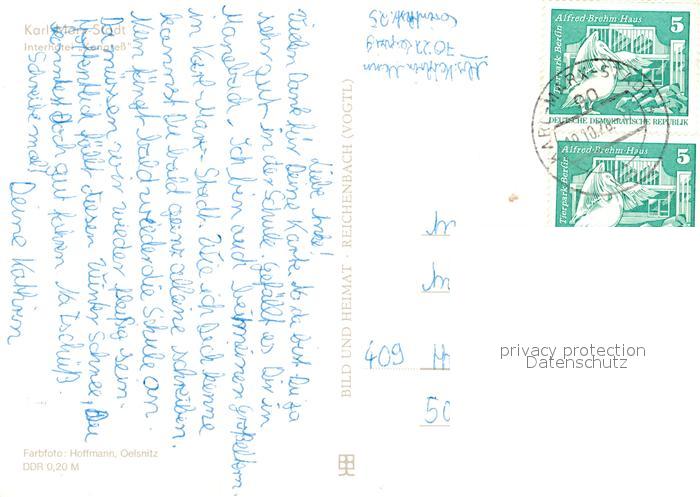 Karl-Marx-Stadt
Interhotel "Kongreß"
Liebe
Vielen Dank für Deine Karte. Da bist Du ja
sehr gut in der Schule. Gefällt es Dir in
Mansfeld. Ich bin auch bei meinen Großeltern
in Karl-Marx-Stadt. Wie ich Dich kenne
kannst Du bald ganz alleine schreiben.
Nun fängt bald wieder die Schule an.
Da müssen wir wieder fleißig sein.
Hoffentlich fällt diesen Winter Schnee, Du
kannst doch gut fahren. Na Tschüß.
Schreibe mal!
Deine Kathrin
Farbfoto: Hoffmann, Oelsnitz
DDR 0,20 M
BILD UND HEIMAT · REICHENBACH (VOGTL)
Abs. Kathrin
7022 Leipzig
25
409 H
50
Alfred-Brehm-Haus
5
Tierpark Berlin
DEUTSCHE DEMOKRATISCHE REPUBLIK
Alfred-Brehm-Haus
5
Tierpark Berlin
KARL-MARX-STADT
90
privacy protection
Datenschutz